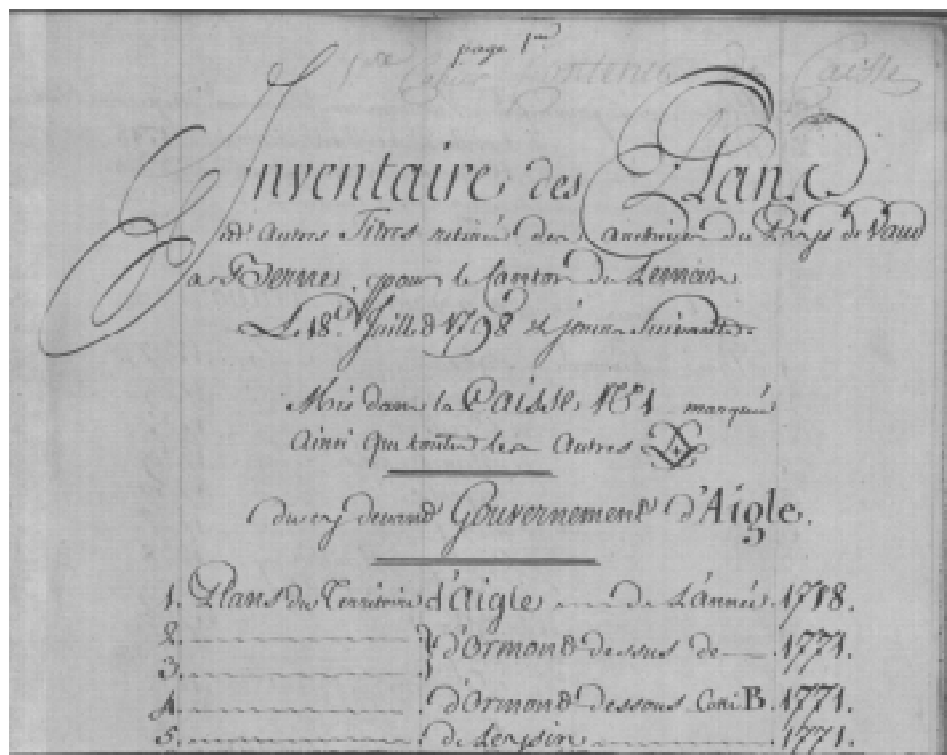 page 1re
Inventaire des Plans
et autres Titres retirés des archives du Pays de Vaud
a Berne, pour le Canton du Leman
Le 18e Juillet 1798 et jours Suivants.
Mis dans la Caisse No 1 marquée
Ainsi que toutes les Autres
du cy devant Gouvernement d'Aigle.
1. Plans du Territoire d'Aigle de L'année 1718.
2.
3. d'Ormond dessus de 1771.
4. d'Ormond dessous Cotté B. 1771.
5. de Leysin 1771.